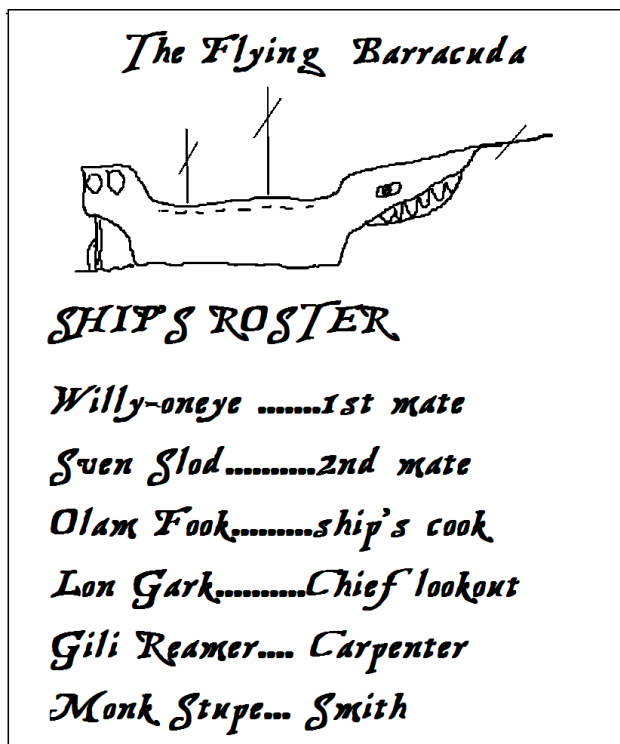 The Flying Barracuda
SHIP'S ROSTER
Willy-oneye .......1st mate
Sven Slod..........2nd mate
Olam Fook.........ship's cook
Lon Gark..........Chief lookout
Gili Reamer.... Carpenter
Monk Stupe... Smith